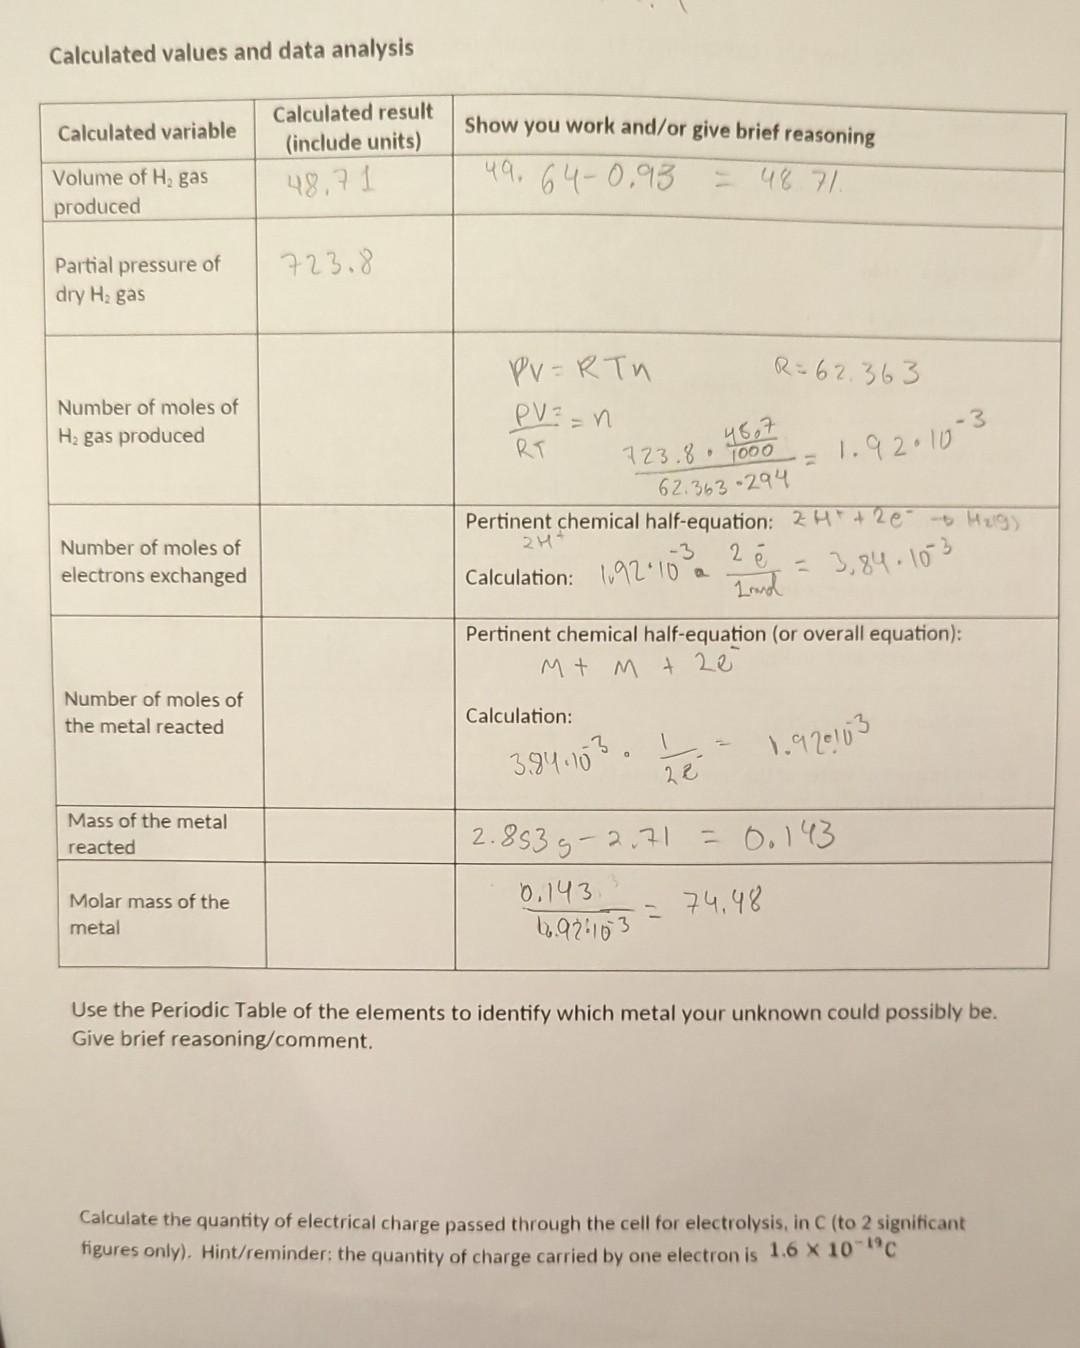 Calculated values and data analysis
Calculated variable
Calculated result
(include units)
Show you work and/or give brief reasoning
Volume of H₂ gas
produced
48.71
49.64-0.93 = 48.71.
Partial pressure of
dry H₂ gas
723.8
Number of moles of
H₂ gas produced
PV = RTn R=62.363
PV= = n
RT
723.8 · 48.7/1000 / 62.363 · 294 = 1.92·10⁻³
Number of moles of
electrons exchanged
Pertinent chemical half-equation: 2H⁺ + 2e⁻ → H₂(g)
2H⁺
Calculation: 1.92·10⁻³ · 2e⁻/1mol = 3.84·10⁻³
Number of moles of
the metal reacted
Pertinent chemical half-equation (or overall equation):
M+ M + 2e⁻
Calculation:
3.84·10⁻³ · 1/2e⁻ = 1.92·10⁻³
Mass of the metal
reacted
2.853g - 2.71 = 0.143
Molar mass of the
metal
0.143 / 1.92·10⁻³ = 74.48
Use the Periodic Table of the elements to identify which metal your unknown could possibly be.
Give brief reasoning/comment.
Calculate the quantity of electrical charge passed through the cell for electrolysis, in C (to 2 significant
figures only). Hint/reminder: the quantity of charge carried by one electron is 1.6 × 10⁻¹⁹C